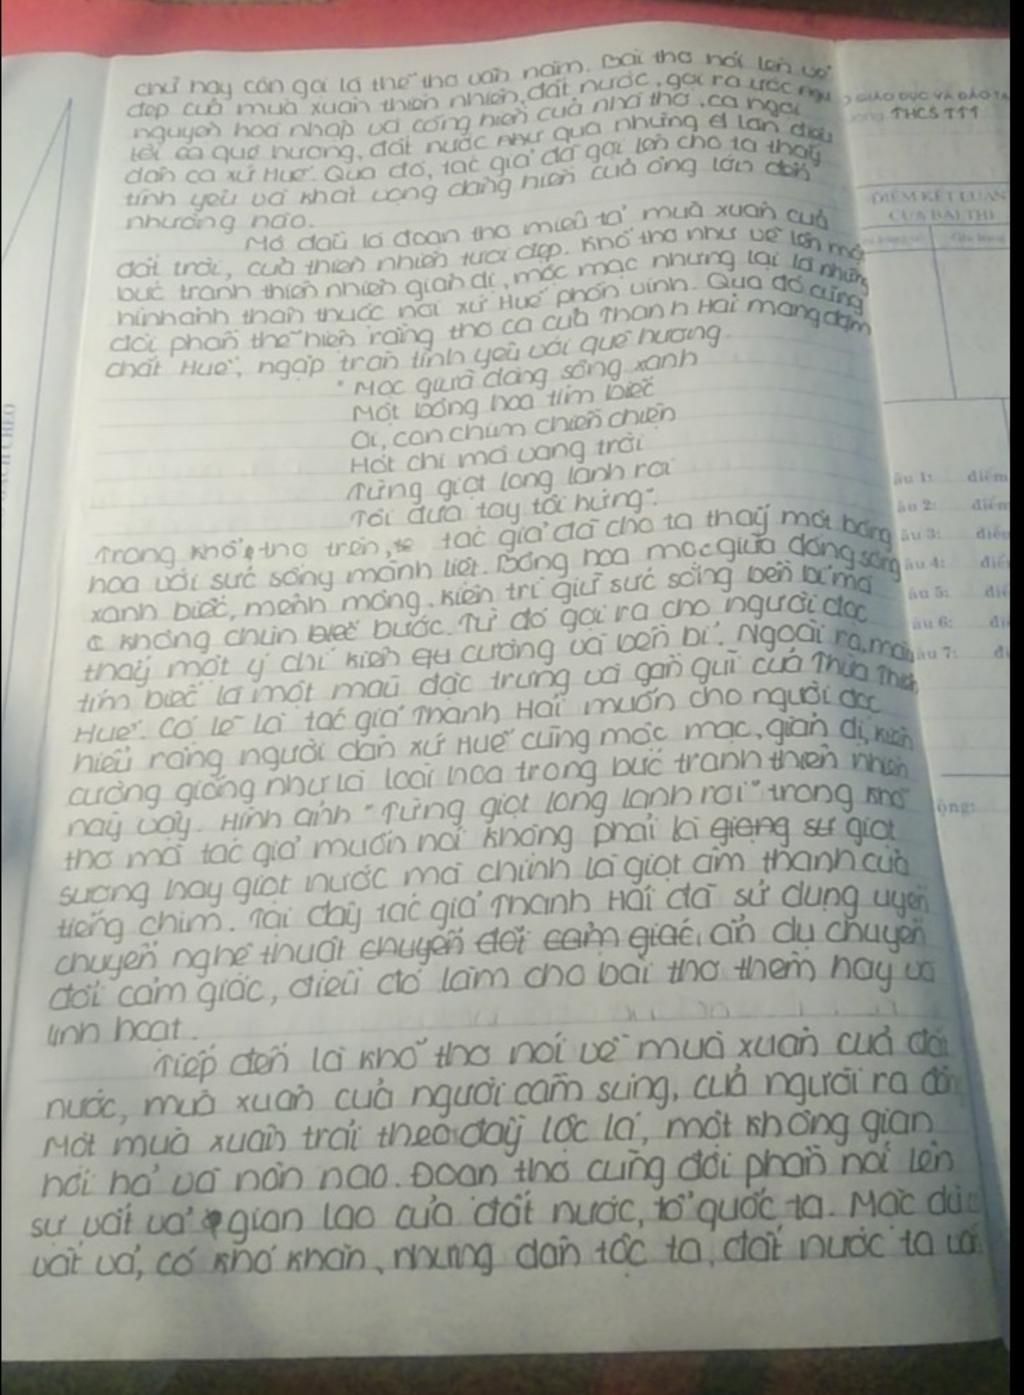 chữ hay còn gọi là thể thơ văn năm. Bài thơ nói lên vẻ
đẹp của mùa xuân thiên nhiên, đất nước, gợi ra ước
nguyện hoà nhập và cống hiến của nhà thơ, ca ngợi
quê hương, đất nước như qua những làn điệu
dân ca xứ Huế. Qua đó, tác giả đã gợi lên cho ta thấy
tình yêu và khát vọng dâng hiến của ông lớn đến
nhường nào.
Mở đầu là đoạn thơ miêu tả mùa xuân của
đất trời, của thiên nhiên tươi đẹp. Khổ thơ như vẽ lên một
bức tranh thiên nhiên giản dị, mộc mạc nhưng lại là những
hình ảnh thân thuộc nơi xứ Huế phồn vinh. Qua đó cũng
đôi phần thể hiện rằng thơ ca của Thanh Hải mang đậm
chất Huế, ngập tràn tình yêu với quê hương.
"Mọc giữa dòng sông xanh
Một bông hoa tím biếc
Ơi, con chim chiền chiện
Hót chi mà vang trời
Từng giọt long lanh rơi
Tôi đưa tay tôi hứng".
Trong khổ thơ trên, tác giả đã cho ta thấy một bông
hoa với sức sống mãnh liệt. Bông hoa mọc giữa dòng sông
xanh biếc, mênh mông, kiên trì giữ sức sống bền bỉ mà
không chùn bước. Từ đó gợi ra cho người đọc
thấy một ý chí kiên cường và bền bỉ. Ngoài ra, màu
tím biếc là một màu đặc trưng và gần gũi của Thừa Thiên
Huế. Có lẽ là tác giả Thanh Hải muốn cho người đọc
hiểu rằng người dân xứ Huế cũng mộc mạc, giản dị, kiên
cường giống như là loài hoa trong bức tranh thiên nhiên
này vậy. Hình ảnh "Từng giọt long lanh rơi" trong khổ
thơ mà tác giả muốn nói không phải là giọt
sương hay giọt nước mà chính là giọt âm thanh của
tiếng chim. Tại đây tác giả Thanh Hải đã sử dụng uyển
chuyển nghệ thuật chuyển đổi cảm giác, ẩn dụ chuyển
đổi cảm giác, điều đó làm cho bài thơ thêm hay và
linh hoạt.
Tiếp đến là khổ thơ nói về mùa xuân của đất
nước, mùa xuân của người cầm súng, của người ra đồng
Một mùa xuân trải theo đầy lộc lá, một không gian
hối hả và nôn nao. Đoạn thơ cũng đôi phần nói lên
sự vất vả gian lao của đất nước, tổ quốc ta. Mặc dù
vất vả, có khó khăn, nhưng dân tộc ta, đất nước ta vẫn
GIÁO DỤC VÀ ĐÀO TẠ
THCS TTT
ĐIỂM KẾT LUẬN
CỦA BÀI THI
âu 1: điểm
âu 2: điểm
âu 3: điểm
âu 4: điể
âu 5: điể
âu 6: đi
âu 7: đ
ộng: